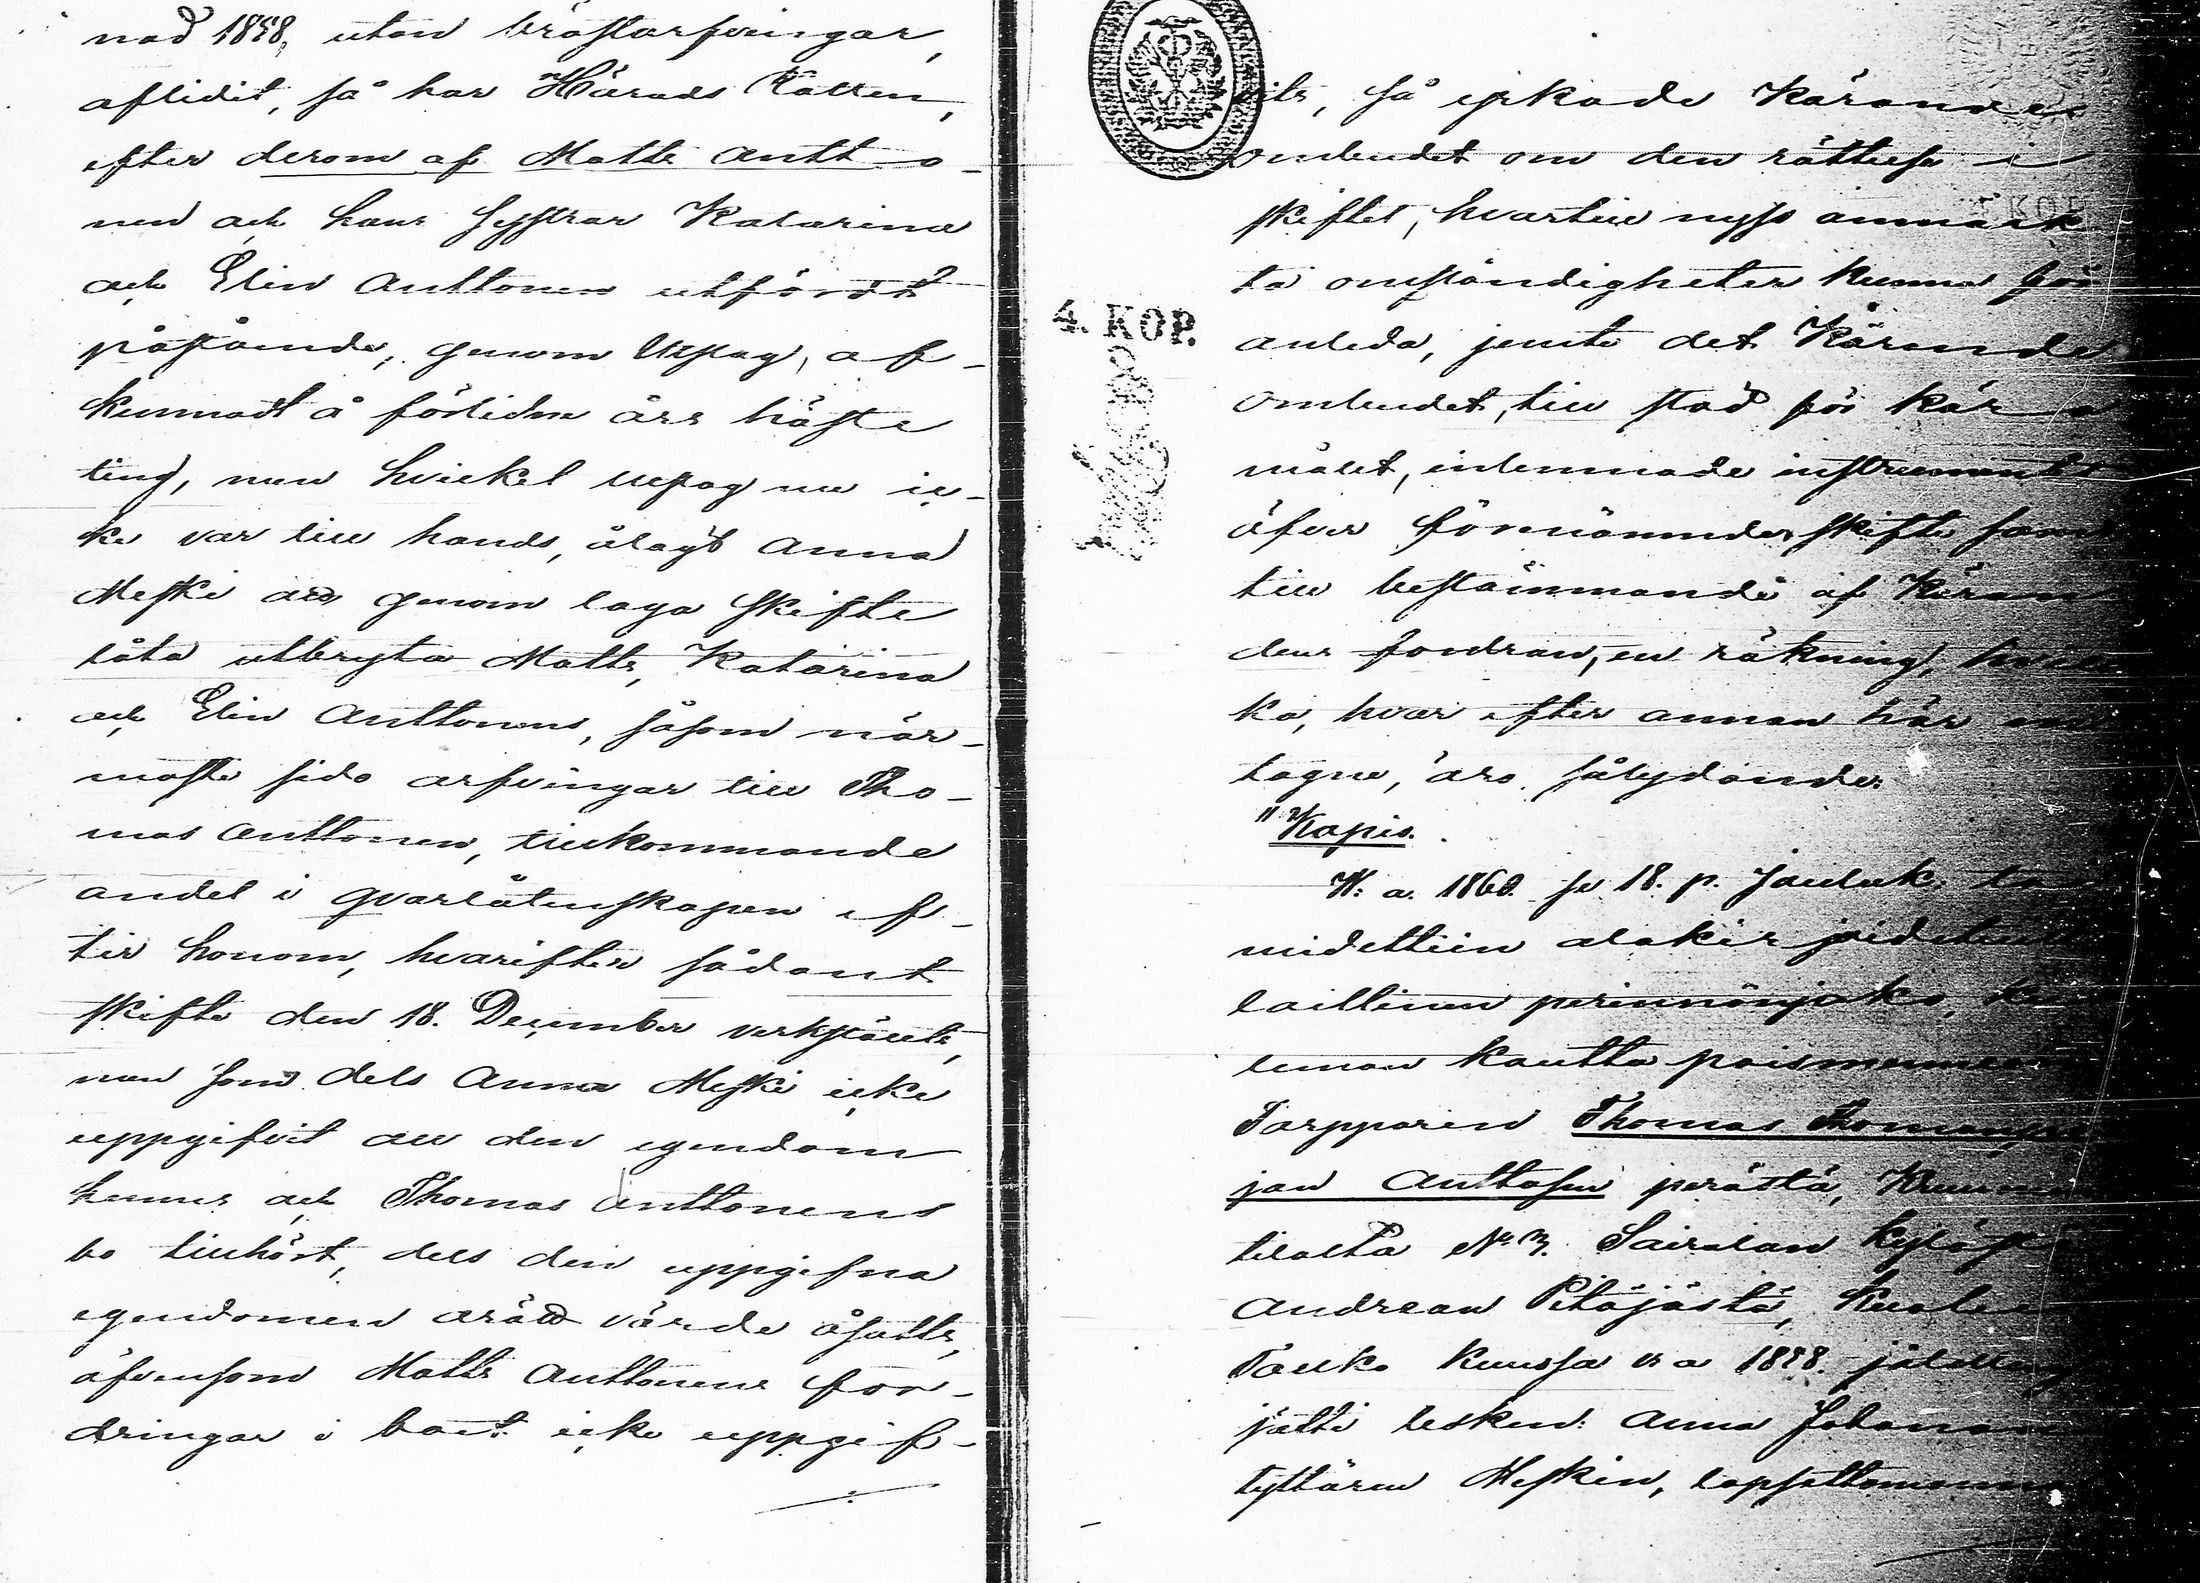 nad 1858, utan bröstarfvingar,
aflidit, så har Härads Rätten,
efter derom af Matts Antto-
nen och hans systrar Katarina
och Elin Anttonen utfördt
påstående, genom Utslag, af-
kunnadt å förlidne års höste
ting, men hvilket utslag nu ic-
ke var till hands, ålagt Anna
Meski att genom laga skifte
låta utbryta Matts, Katarina
och Elin Anttonens, såsom när-
maste sido arfvingar till Tho-
mas Anttonen, tillkommande
andel i qvarlåtenskapen ef-
ter honom, hvarefter sådant
skifte den 18. December verkstälts,
men som dels Anna Meski icke
uppgifvit all den egendom
hennes och Thomas Anttonens
bo tillhört, dels den uppgifna
egendomen orätt värde åsatts,
äfvensom Matts Anttonens for-
dringar i boet icke uppgif-
vits, så yrkade Kärande
ombudet om den rättelse i
skiftet, hvartill nyss anmärk
ta omständigheter kunna för
anleda, jemte det Kärande
ombudet, till stöd för käro
målet, inlemnade instrument
öfver förenämnde skifte samt
till bestämmande af Käran
dens fordran, en räkning, hvil
ka, hvar efter annan här
tagne, äro sålydande:
"Kopia.
W. a. 1860. se 18. p. Jouluk.
midettiin alakir
laillinen perinnönjako,
kautta
Torpparin Thomas Thomanpo
jan Anttosen perästä,
tilalta No 3. Sairalan kyläs
Andrean Pitäjästä,
Touko kuussa v. a 1858.
jätti lesken: Anna Johanan
tyttären Meskin,
4. KOP.